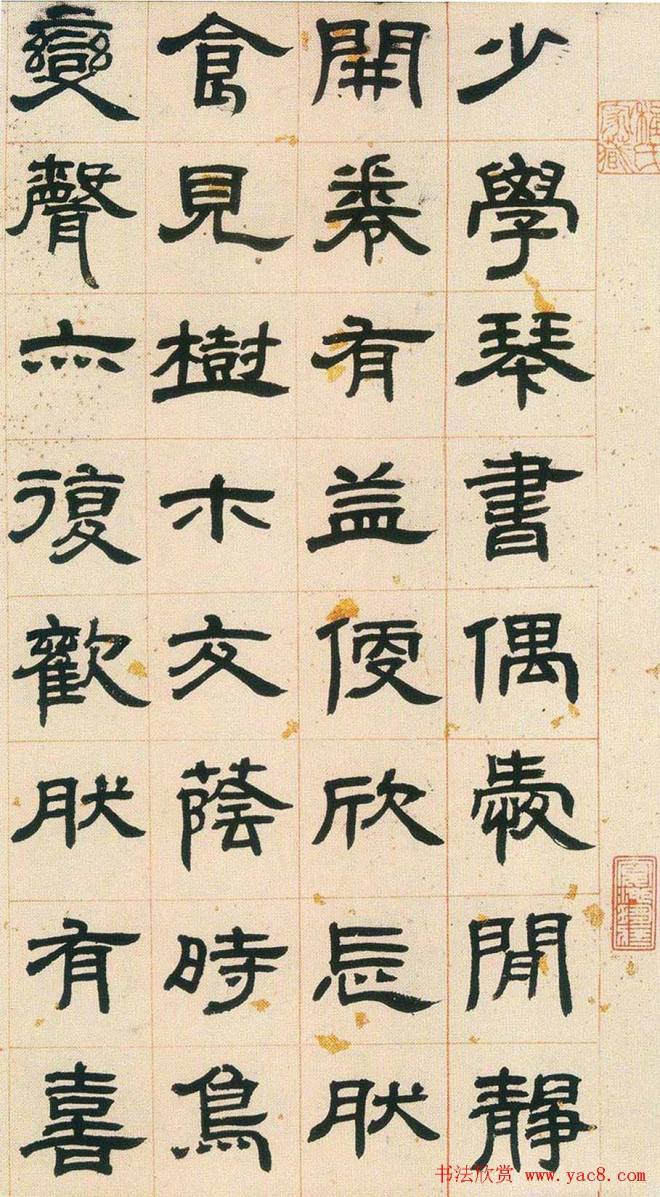 少學琴書偶愛閒靜
開卷有益便欣忘肰
食見樹木交蔭時鳥
變聲亦復歡肰有喜
书法欣赏 www.yac8.com